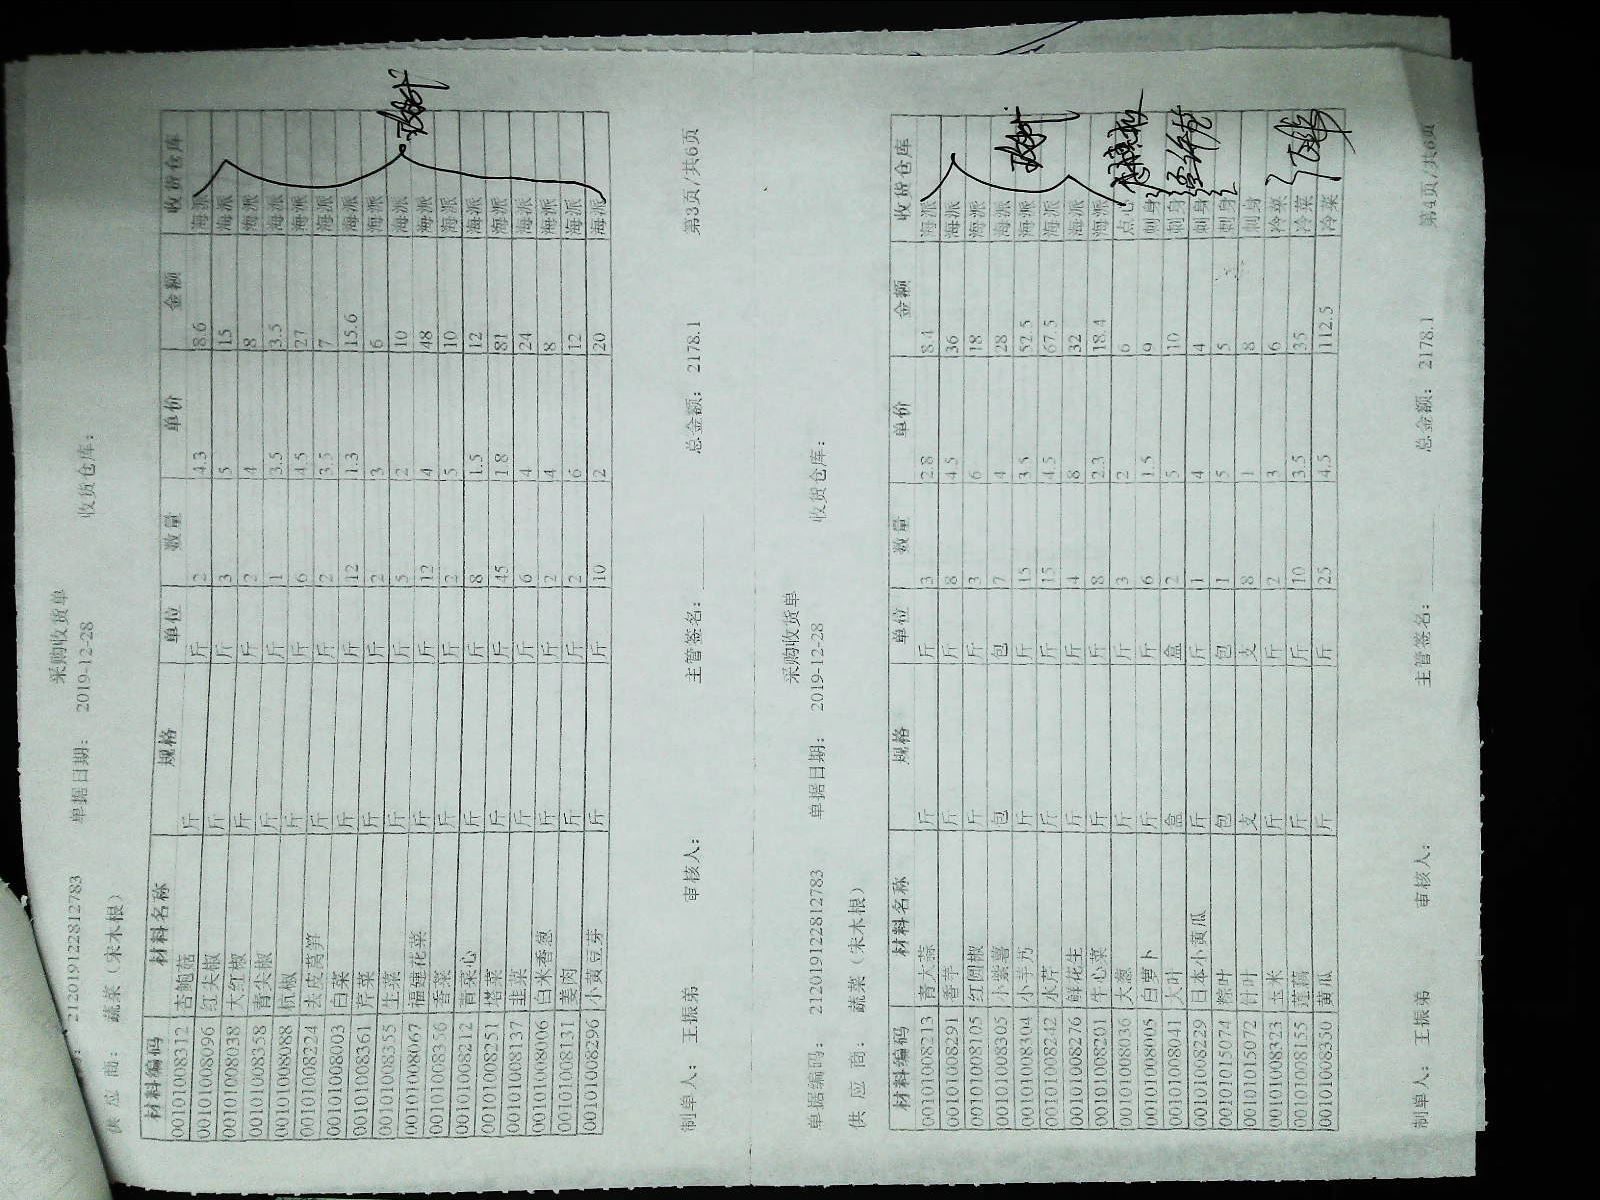 采购收货单
21201912281 2783 单据日期： 2019-12-28 收货仓库：
供 应 商： 蔬菜（宋木根）
材料编码 材料名称 规格 单位 数量 单价 金额 收货仓库
00101008312 杏鲍菇 斤 斤 2 4.3 8.6 海派
00101008096 红尖椒 斤 斤 3 5 15 海派
00101008038 大红椒 斤 斤 2 4 8 海派
00101008358 青尖椒 斤 斤 1 3.5 3.5 海派
00101008088 杭椒 斤 斤 6 4.5 27 海派
00101008224 去皮莴笋 斤 斤 2 3.5 7 海派
00101008003 白菜 斤 斤 12 1.3 15.6 海派
00101008361 芹菜 斤 斤 2 3 6 海派
00101008355 生菜 斤 斤 5 2 10 海派
00101008067 福建花菜 斤 斤 12 4 48 海派
00101008356 香菜 斤 斤 2 5 10 海派
00101008212 青菜心 斤 斤 8 1.5 12 海派
00101008251 塔菜 斤 斤 45 1.8 81 海派
00101008137 韭菜 斤 斤 6 4 24 海派
00101008006 白米香葱 斤 斤 2 4 8 海派
00101008131 姜肉 斤 斤 2 6 12 海派
00101008296 小黄豆芽 斤 斤 10 2 20 海派
制单人： 王振弟 审核人： 主管签名： 总金额： 2178.1 第3页/共6页
采购收货单
单据编码： 21201912281 2783 单据日期： 2019-12-28 收货仓库：
供 应 商： 蔬菜（宋木根）
材料编码 材料名称 规格 单位 数量 单价 金额 收货仓库
00101008213 青大蒜 斤 斤 3 2.8 8.4 海派
00101008291 香芋 斤 斤 8 4.5 36 海派
00101008105 红圆椒 斤 斤 3 6 18 海派
00101008305 小紫薯 包 包 7 4 28 海派
00101008304 小芋艿 斤 斤 15 3.5 52.5 海派
00101008242 水芹 斤 斤 15 4.5 67.5 海派
00101008276 鲜花生 斤 斤 4 8 32 海派
00101008201 牛心菜 斤 斤 8 2.3 18.4 海派
00101008036 大葱 斤 斤 3 2 6 点心
00101008005 白萝卜 斤 斤 6 1.5 9 刺身
00101008041 大叶 盒 盒 2 5 10 刺身
00101008229 日本小黄瓜 斤 斤 1 4 4 刺身
00101015074 粽叶 包 包 1 5 5 刺身
00101015072 针叶 支 支 8 1 8 刺身
00101008323 玉米 斤 斤 2 3 6 冷菜
00101008155 莲藕 斤 斤 10 3.5 35 冷菜
00101008330 黄瓜 斤 斤 25 4.5 112.5 冷菜
制单人： 王振弟 审核人： 主管签名： 总金额： 2178.1 第4页/共6页